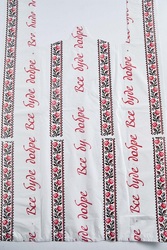 Все буде добре
Все буде добре
Все буде добре
Все буде добре
Все буде добре
Все буде добре
Все буде добре